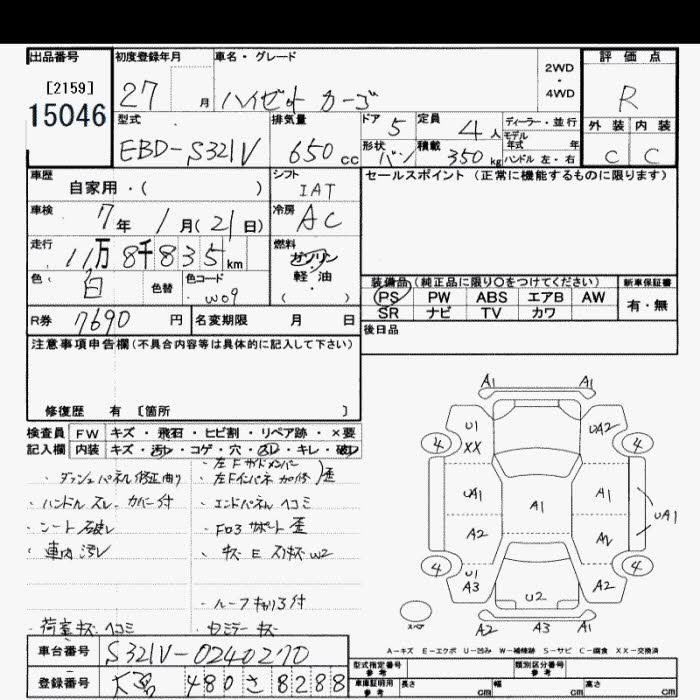 出品番号 初度登録年月 車名・グレード 2WD・4WD 評価点
[2159] 15046
27 月 ハイゼット カーゴ R
型式 排気量 ドア 5 定員 4人 ディーラー・並行 外装 内装
EBD-S321V 650cc 形状 バン 積載 350kg モデル年式 年 ハンドル 左・右 C C
車歴 自家用・( ) シフト IAT セールスポイント (正常に機能するものに限ります)
車検 7年 1月(21日) 冷房 AC
走行 11万8千835km 燃料 ガソリン・軽油 ( )
色 白 色替 色コード W09 装備品 (純正品に限り○をつけてください) 新車保証書
PS PW ABS エアB AW 有・無
SR ナビ TV カワ
R券 7690円 名変期限 月 日 後日品
注意事項申告欄 (不具合内容等は具体的に記入して下さい)
修復歴 有 [箇所 ]
検査員 FW キズ・飛石・ヒビ割・リペア跡・×要
記入欄 内装 キズ・汚レ・コゲ・穴・凹・キレ・破レ
・ダッシュパネル修正有り
・ハンドル スレ カバー付
・シート 破レ
・車内 汚レ
・荷室 キズ ヘコミ
・左Fサイドメンバー
・左Fインパネ 加修 歪
・エンドパネル ヘコミ
・Fロ3 サポート 歪
・キズ E W2
・ルーフキャリア付
キズ
A1 A1
U1 UA2
XX
4 4
UA1 A1 A1 UA1
A2 A2
4 4
U1
A3 U2 A2
スペア A2 A3 A1
A-キズ E-エクボ U-凹み W-補修跡 S-サビ C-腐食 XX-交換済
車台番号 S321V-0240270
型式指定番号 参考 類別区分番号 参考
登録番号 480 さ 8288
車庫証明用 参考 長さ cm 幅 cm 高さ cm